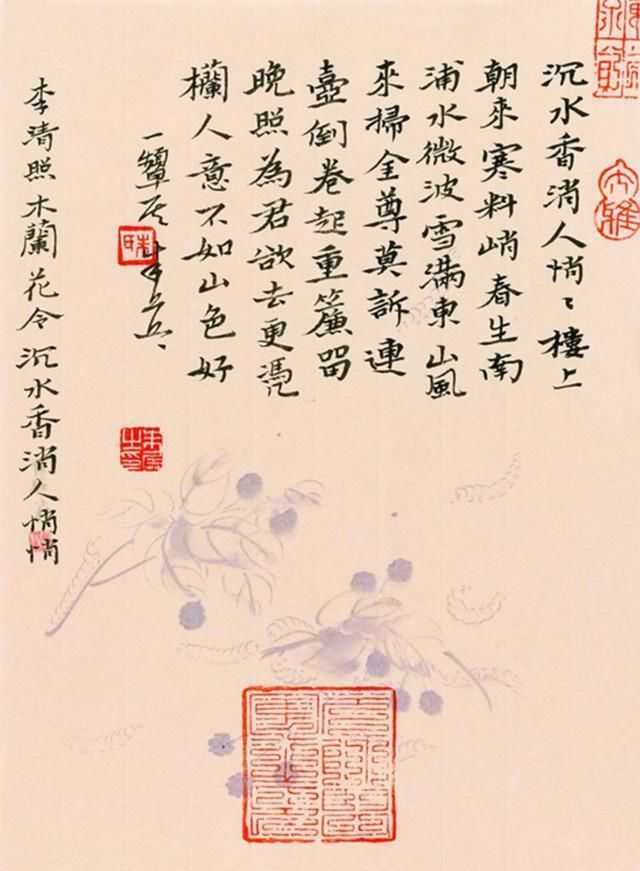 沉水香消人悄〻樓上
朝來寒料峭春生南
浦水微波雪滿東山風
來掃金尊莫訴連
壺倒卷起重簾留
晚照為君欲去更凴
欄人意不如山色好
李清照木蘭花令沉水香消人悄悄